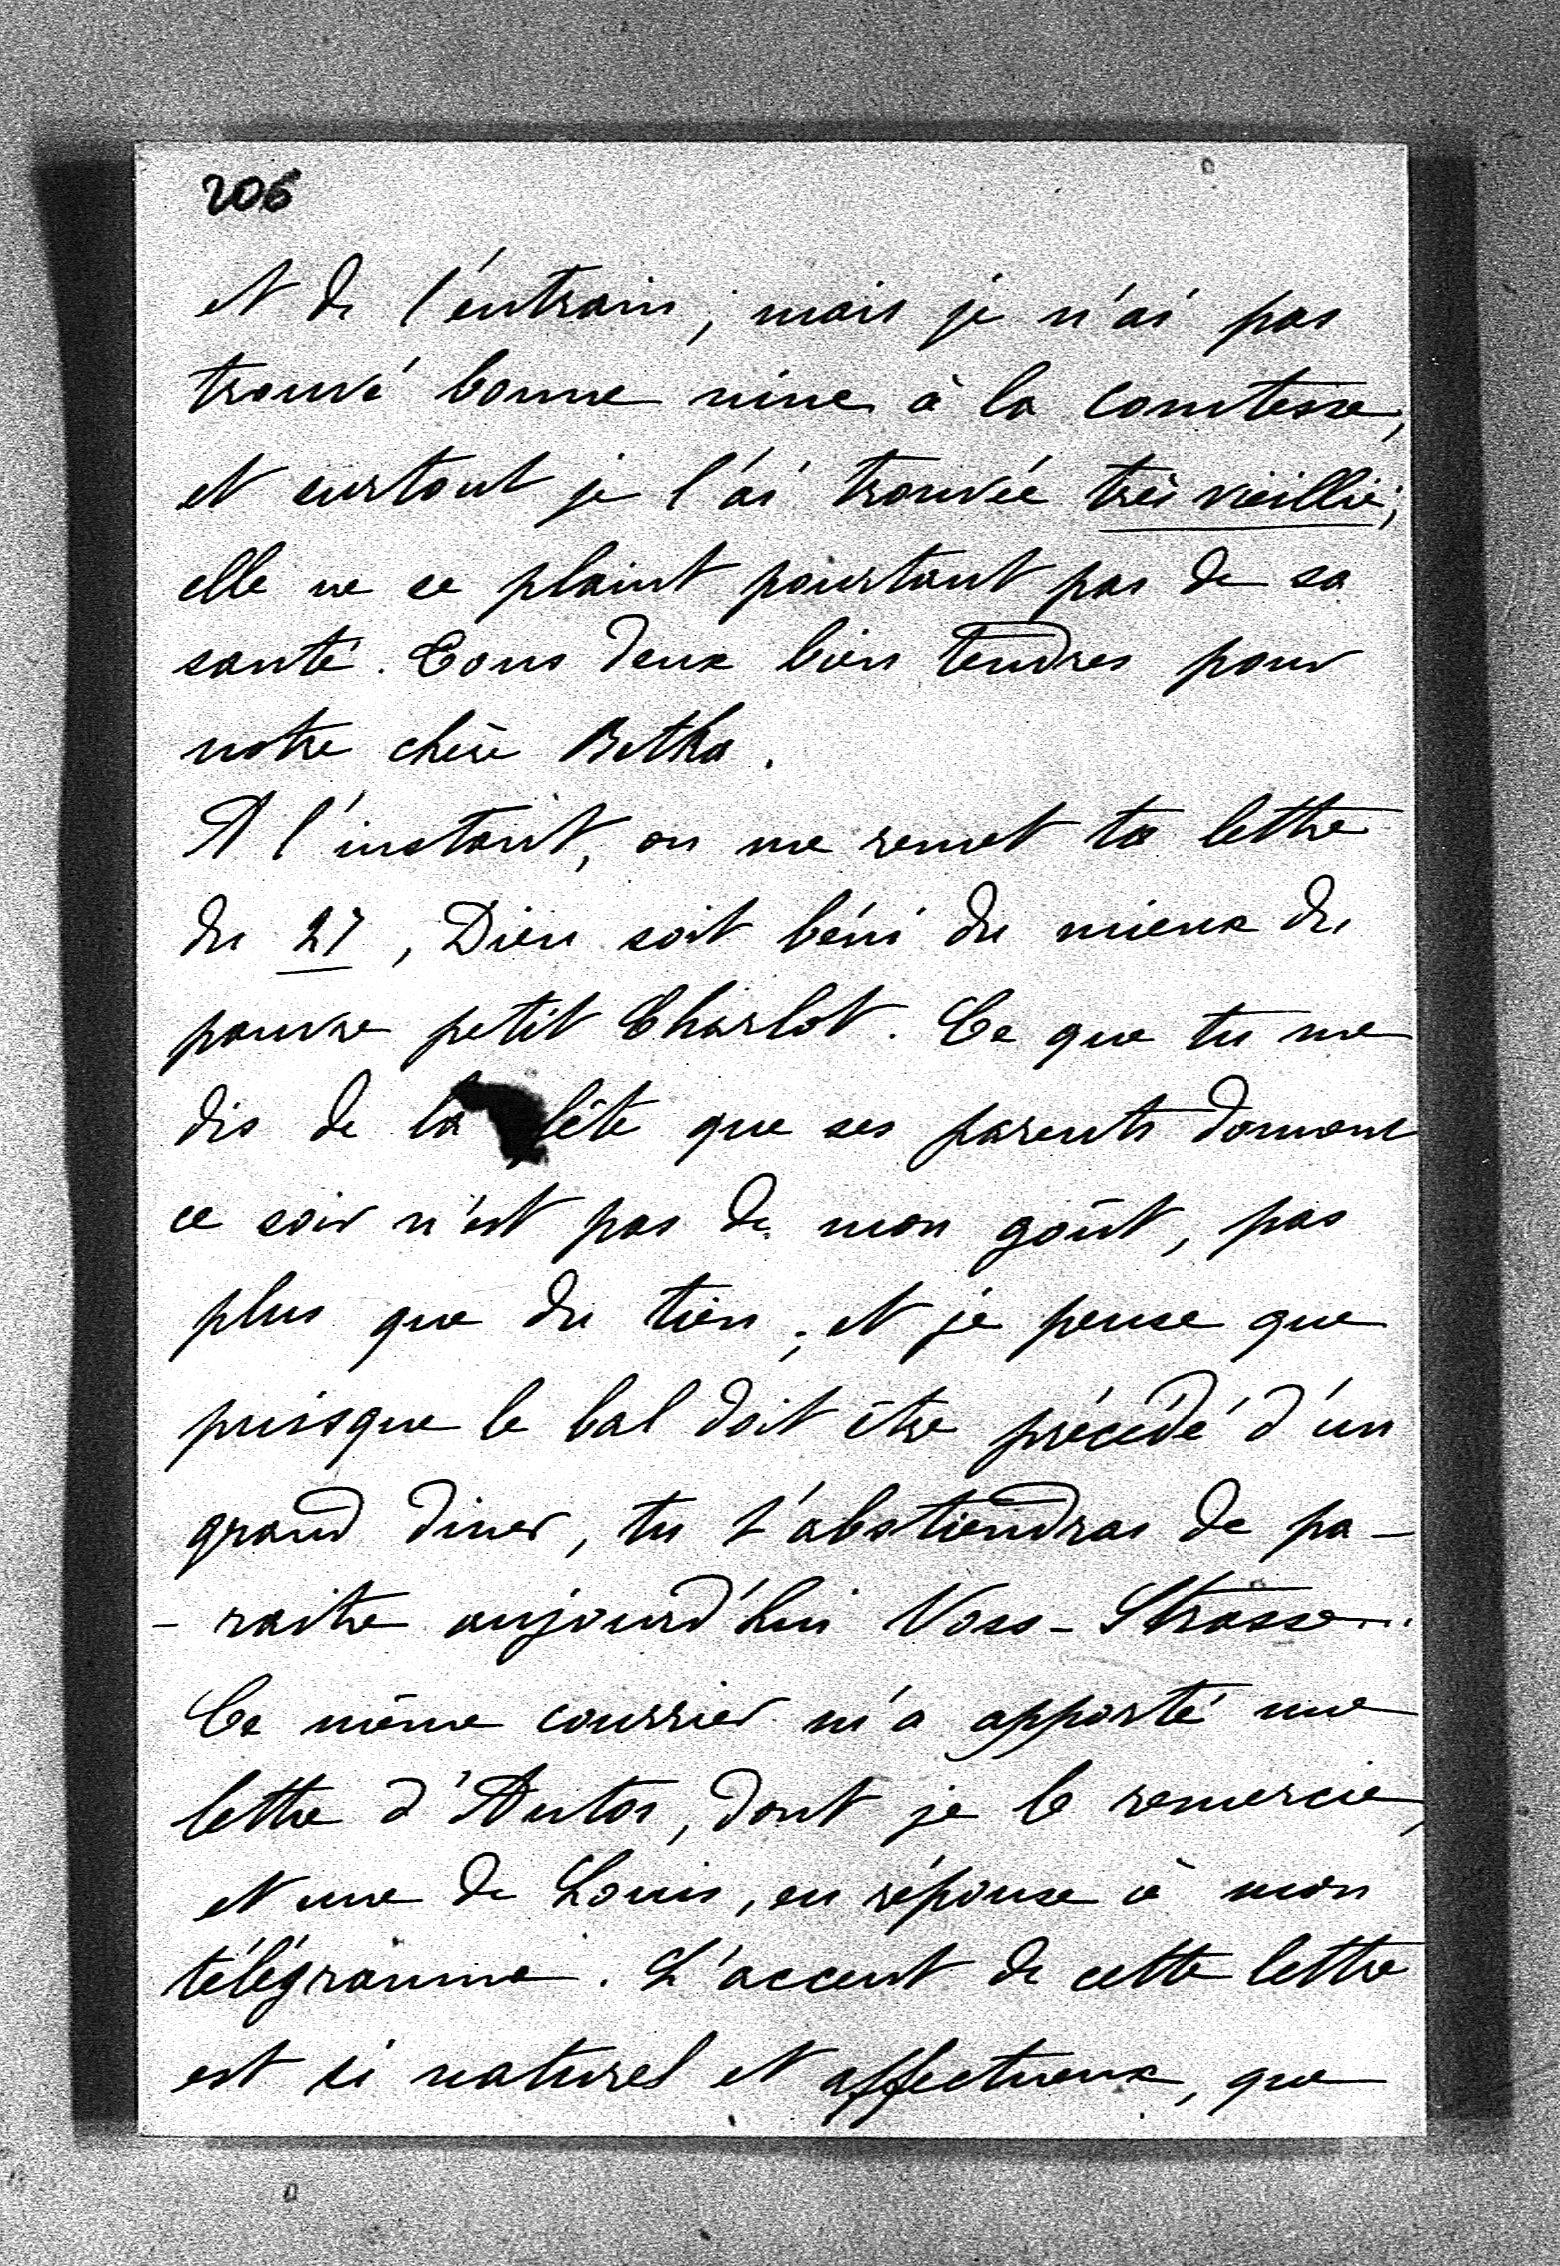 206
et de l'entrain ; mais je n'ai pas
trouvé bonne mine à la comtesse,
et surtout je l'ai trouvée très vieillie ;
elle ne se plaint pourtant pas de sa
santé. Tous deux bien tendres pour
notre chère Betka.
A l'instant, on me remet ta lettre
du 27, Dieu soit béni du mieux du
pauvre petit Charlot. Ce que tu me
dis de la fête que ses parents donnent
ce soir n'est pas de mon goût, pas
plus que du tien ; et je pense que
puisque le bal doit être précédé d'un
grand diner, tu t'abstiendras de pa-
-raitre aujourd'hui Voss-Strasse...
Ce même courrier m'a apporté une
lettre d'Anton, dont je le remercie,
et une de Louis, en réponse à mon
télégramme. L'accent de cette lettre
est si naturel et affectueux, que